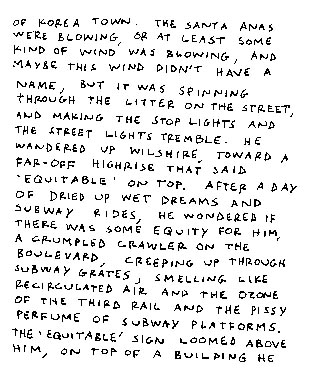 OF KOREA TOWN. THE SANTA ANAS
WERE BLOWING, OR AT LEAST SOME
KIND OF WIND WAS BLOWING, AND
MAYBE THIS WIND DIDN'T HAVE A
NAME, BUT IT WAS SPINNING
THROUGH THE LITTER ON THE STREET,
AND MAKING THE STOP LIGHTS AND
THE STREET LIGHTS TREMBLE. HE
WANDERED UP WILSHIRE, TOWARD A
FAR-OFF HIGHRISE THAT SAID
'EQUITABLE' ON TOP. AFTER A DAY
OF DRIED UP WET DREAMS AND
SUBWAY RIDES, HE WONDERED IF
THERE WAS SOME EQUITY FOR HIM,
A CRUMPLED CRAWLER ON THE
BOULEVARD, CREEPING UP THROUGH
SUBWAY GRATES, SMELLING LIKE
RECIRCULATED AIR AND THE OZONE
OF THE THIRD RAIL AND THE PISSY
PERFUME OF SUBWAY PLATFORMS.
THE 'EQUITABLE' SIGN LOOMED ABOVE
HIM, ON TOP OF A BUILDING HE